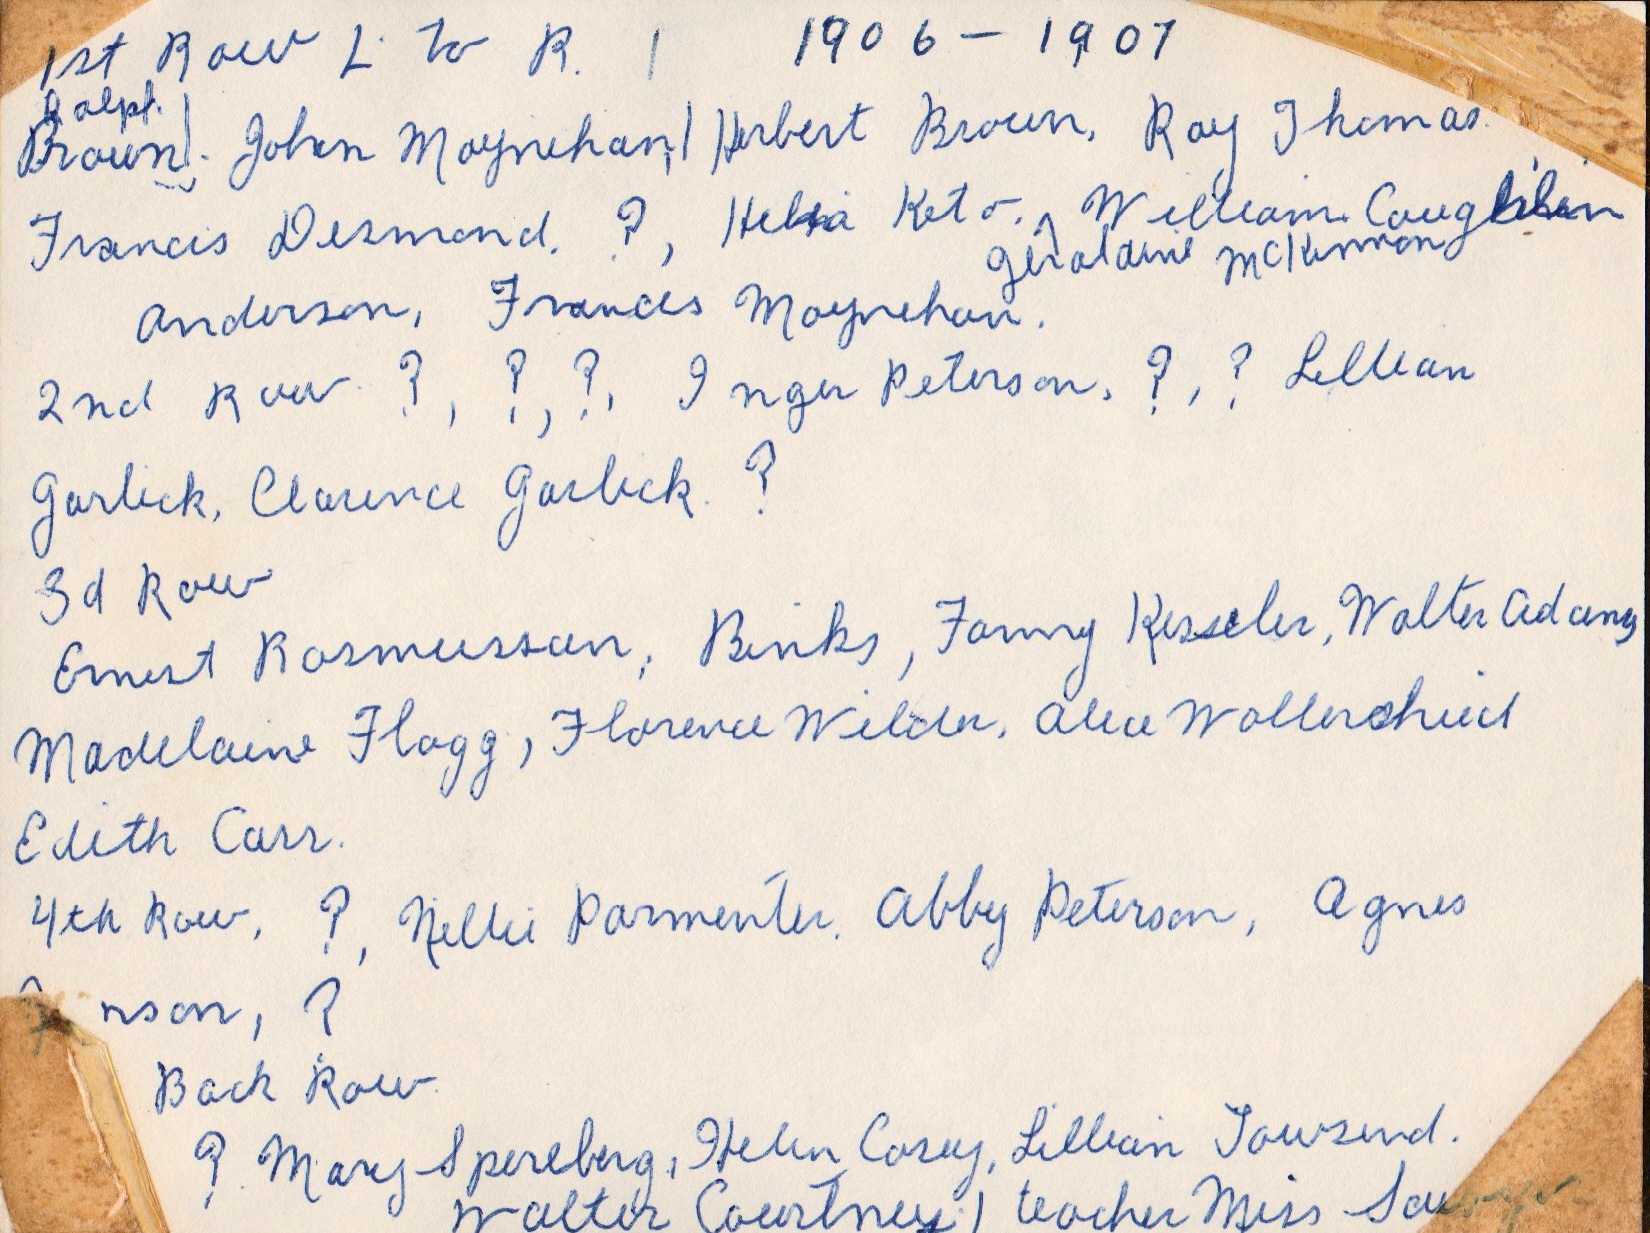 1st Row L. to R. 1 1906 - 1907
Ralph
Brown). John Moynehan, Herbert Brown, Roy Thomas.
Francis Desmond. ?, Keto. ^ William Coughlin
Geraldine McKinnon
Anderson, Francis Moynehan.
2nd Row. ?, ?, ?, Inger Peterson, ?, ? Lillian
Garlick, Clarence Garlick. ?
3d Row
Ernest Rasmussan, Binks, Fanny Kessler, Walter Adams
Madelaine Flagg, Florence Wilder, Alice Wollerschied
Edith Carr.
4th Row, ?, Nellie Parmenter. Abby Peterson, Agnes
nson, ?
Back Row.
? Mary Sperlberg, Helen Casey, Lillian Towsend.
Walter Courtney) teacher Miss